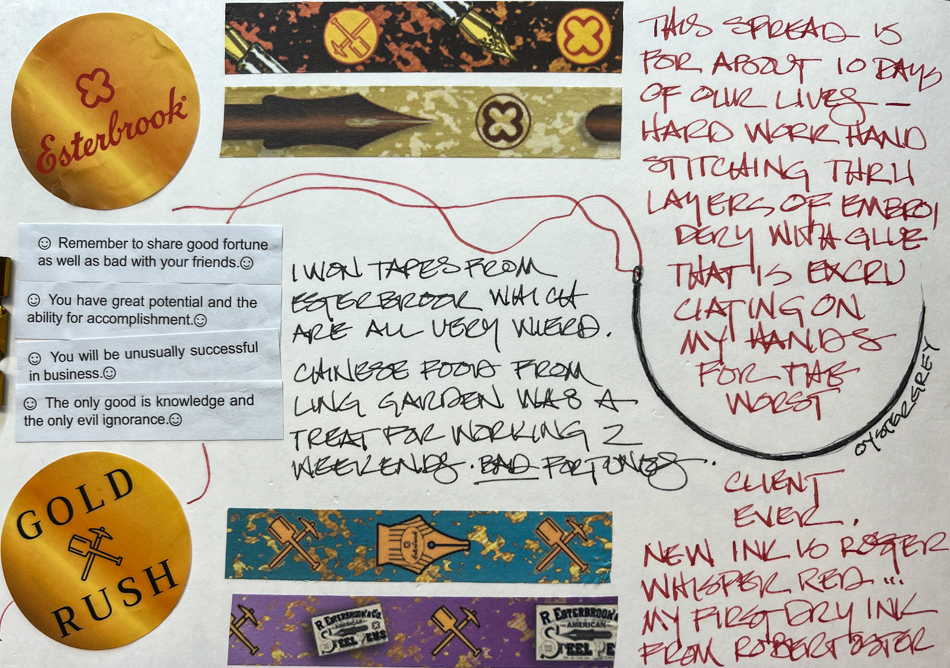 Esterbrook®
☺ Remember to share good fortune
as well as bad with your friends.☺
☺ You have great potential and the
ability for accomplishment.☺
☺ You will be unusually successful
in business.☺
☺ The only good is knowledge and
the only evil ignorance.☺
GOLD
RUSH
I WON TAPES FROM
ESTERBROOK WHICH
ARE ALL VERY WIERD.
CHINESE FOOD FROM
LING GARDEN WAS A
TREAT FOR WORKING 2
WEEKENDS. BAD FORTUNES.
R. ESTERBROOK & CO.
AMERICAN
STEEL PENS
R. ESTERBROOK &
AMERICAN
STEEL PENS
THIS SPREAD IS
FOR ABOUT 10 DAYS
OF OUR LIVES –
HARD WORK HAND
STITCHING THRU
LAYERS OF EMBROI
DERY WITH GLUE
THAT IS EXCRU
CIATING ON
MY HANDS
FOR THE
WORST
OYSTER GREY
CLIENT
EVER.
NEW INK IS ROSTER
WHISPER RED...
MY FIRST DRY INK
FROM ROBERT OSTER